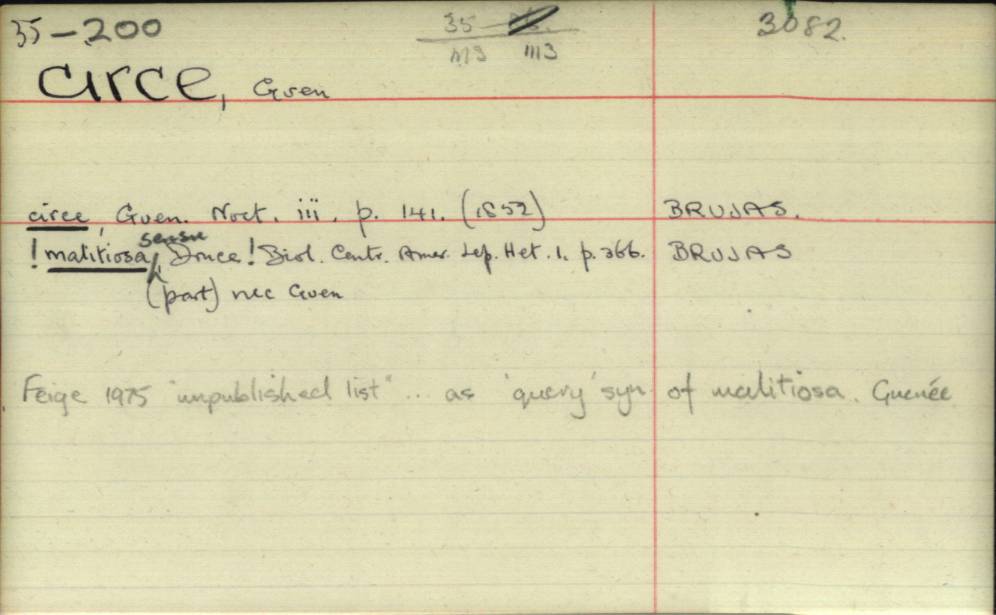 35-200 35 3082.
M3 M3
circe, Guen
circe, Guen. Noct. iii. p. 141. (1852) BRUJAS.
sensu
!malitiosa, Druce! Biol. Centr. Amer. Lep. Het. 1. p. 366. BRUJAS
(part) nec Guen
Feige 1975 "unpublished list" .. as 'query' syn of malitiosa. Guenée